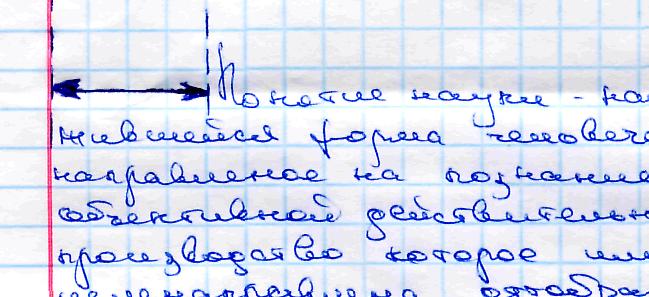 Понятие науки - на
жившейся форма человече
направленое на познание
объективной действительн
производство которое им
целенаправлена отобра